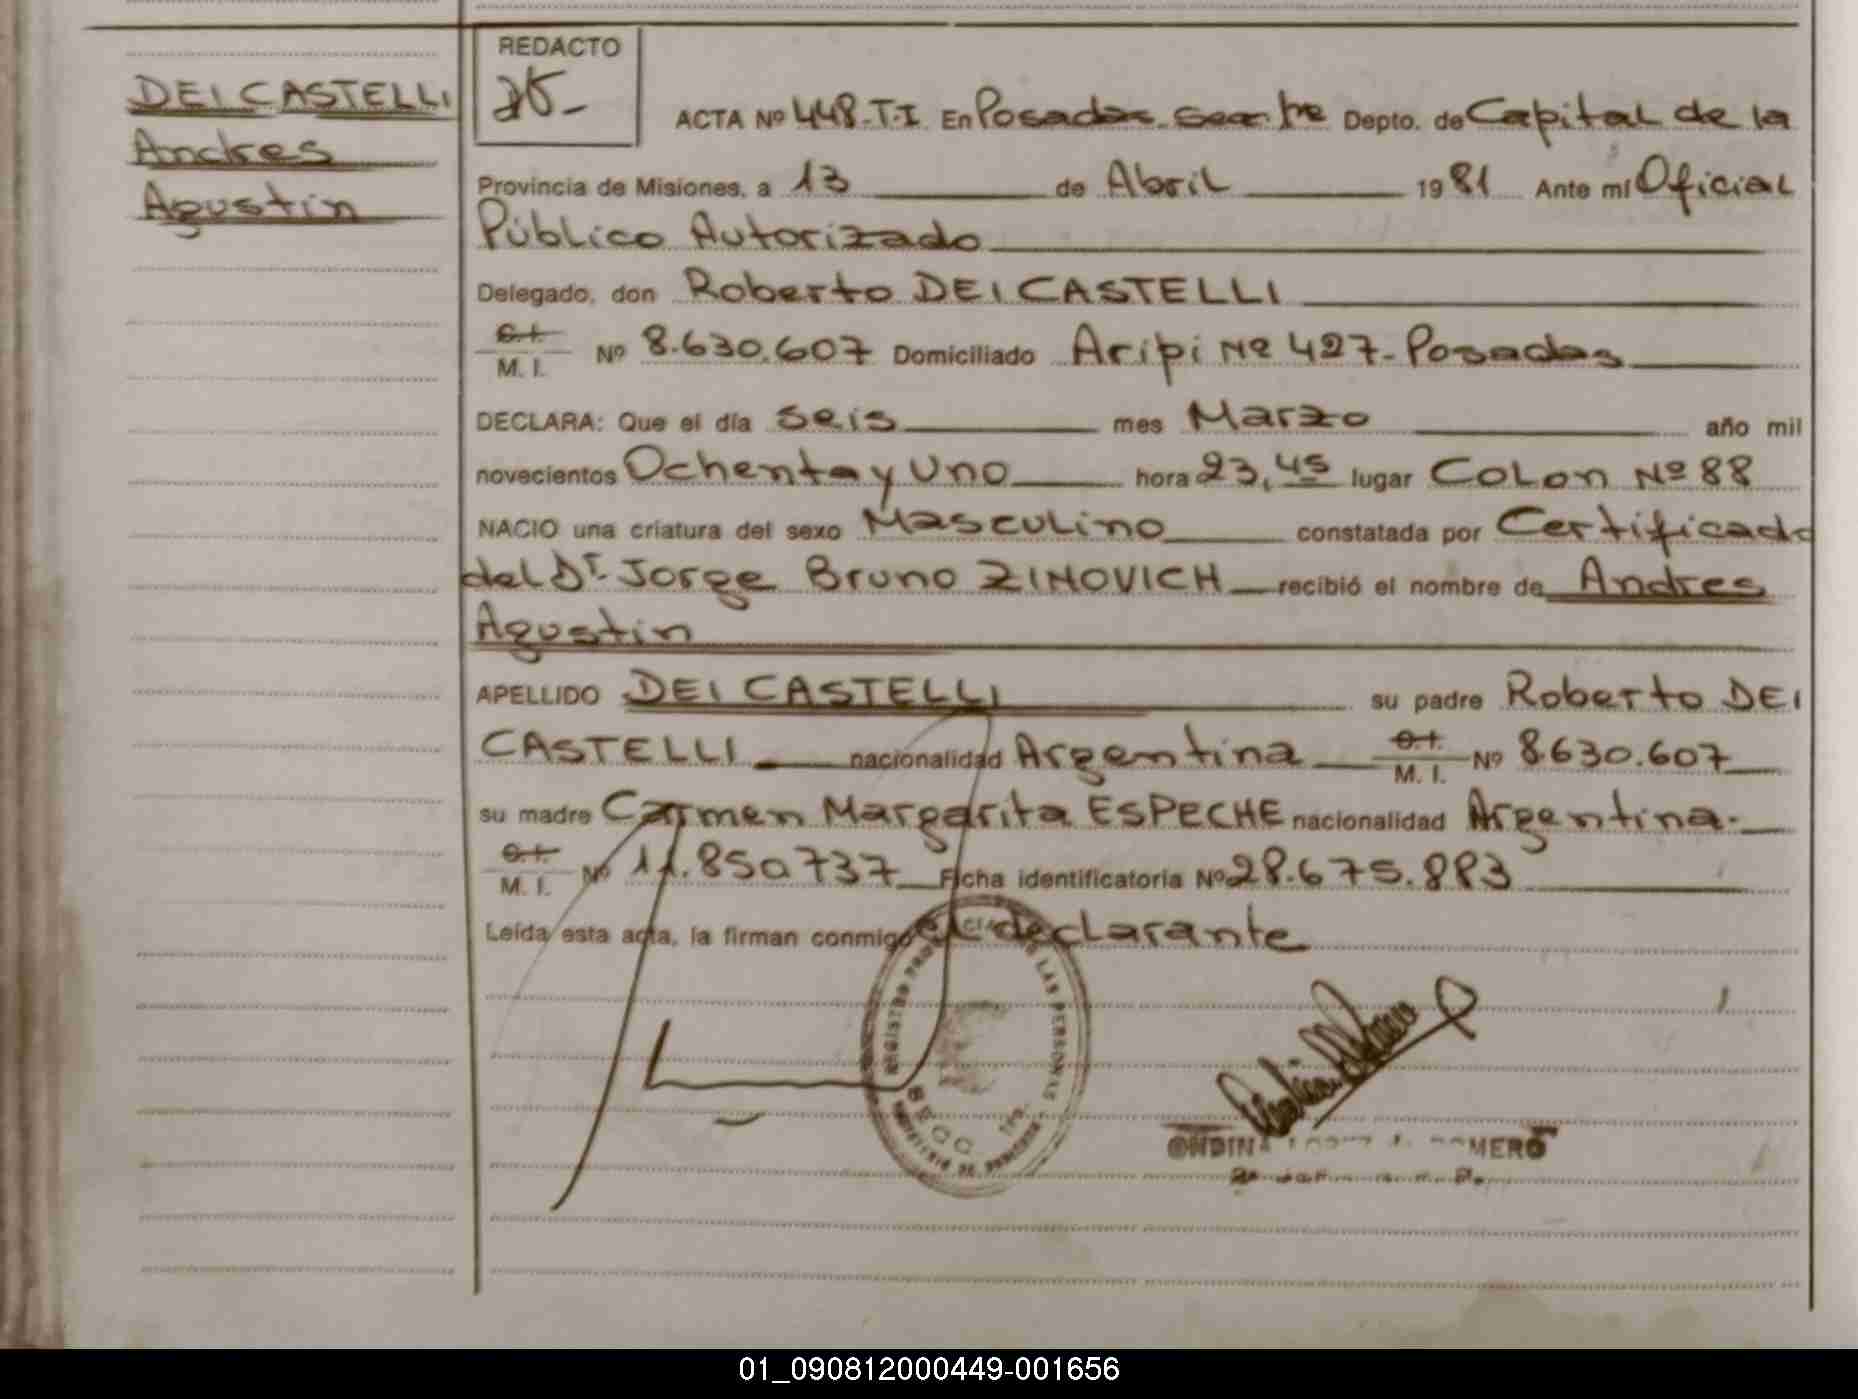 REDACTO
DEI CASTELLI
Andres
Agustin
ACTA Nº 448-T-I En Posadas Depto. de Capital de la
Provincia de Misiones, a 13 de Abril 1981 Ante mí Oficial
Público Autorizado
Delegado, don Roberto DEI CASTELLI
M. I. Nº 8.630.607 Domiciliado Aripi Nº 427-Posadas
DECLARA: Que el día seis mes Marzo año mil
novecientos Ochenta y Uno hora 23,45 lugar Colon Nº 88
NACIO una criatura del sexo Masculino constatada por Certificado
del Dr. Jorge Bruno ZINOVICH recibió el nombre de Andres
Agustin
APELLIDO DEI CASTELLI su padre Roberto DEI
CASTELLI nacionalidad Argentina M. I. Nº 8630.607
su madre Carmen Margarita ESPECHE nacionalidad Argentina.
M. I. Nº 11.850737 Ficha identificatoria Nº 28.675.883
Leída esta acta, la firman conmigo el declarante
LAS PERSONAS
ONDINA ROMERO
01_090812000449-001656